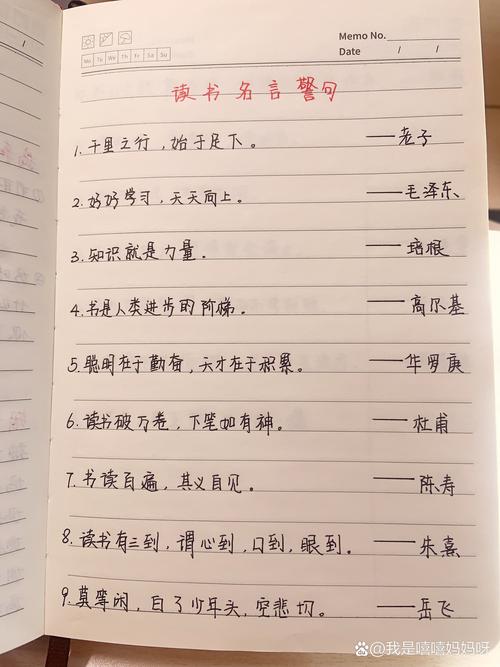 Memo No.
Mo Tu We Th Fr Sa Su
Date / /
读书名言警句
1.千里之行，始于足下。 ——老子
2.好好学习，天天向上。 ——毛泽东
3.知识就是力量. ——培根
4.书是人类进步的阶梯。 ——高尔基
5.聪明在于勤奋，天才在于积累。 ——华罗庚
6.读书破万卷，下笔如有神。 ——杜甫
7.书读百遍，其义自见。 ——陈寿
8.读书有三到，谓心到，口到，眼到。 ——朱熹
9.莫等闲，白了少年头，空悲切。 ——岳飞
我是嘻嘻妈妈呀